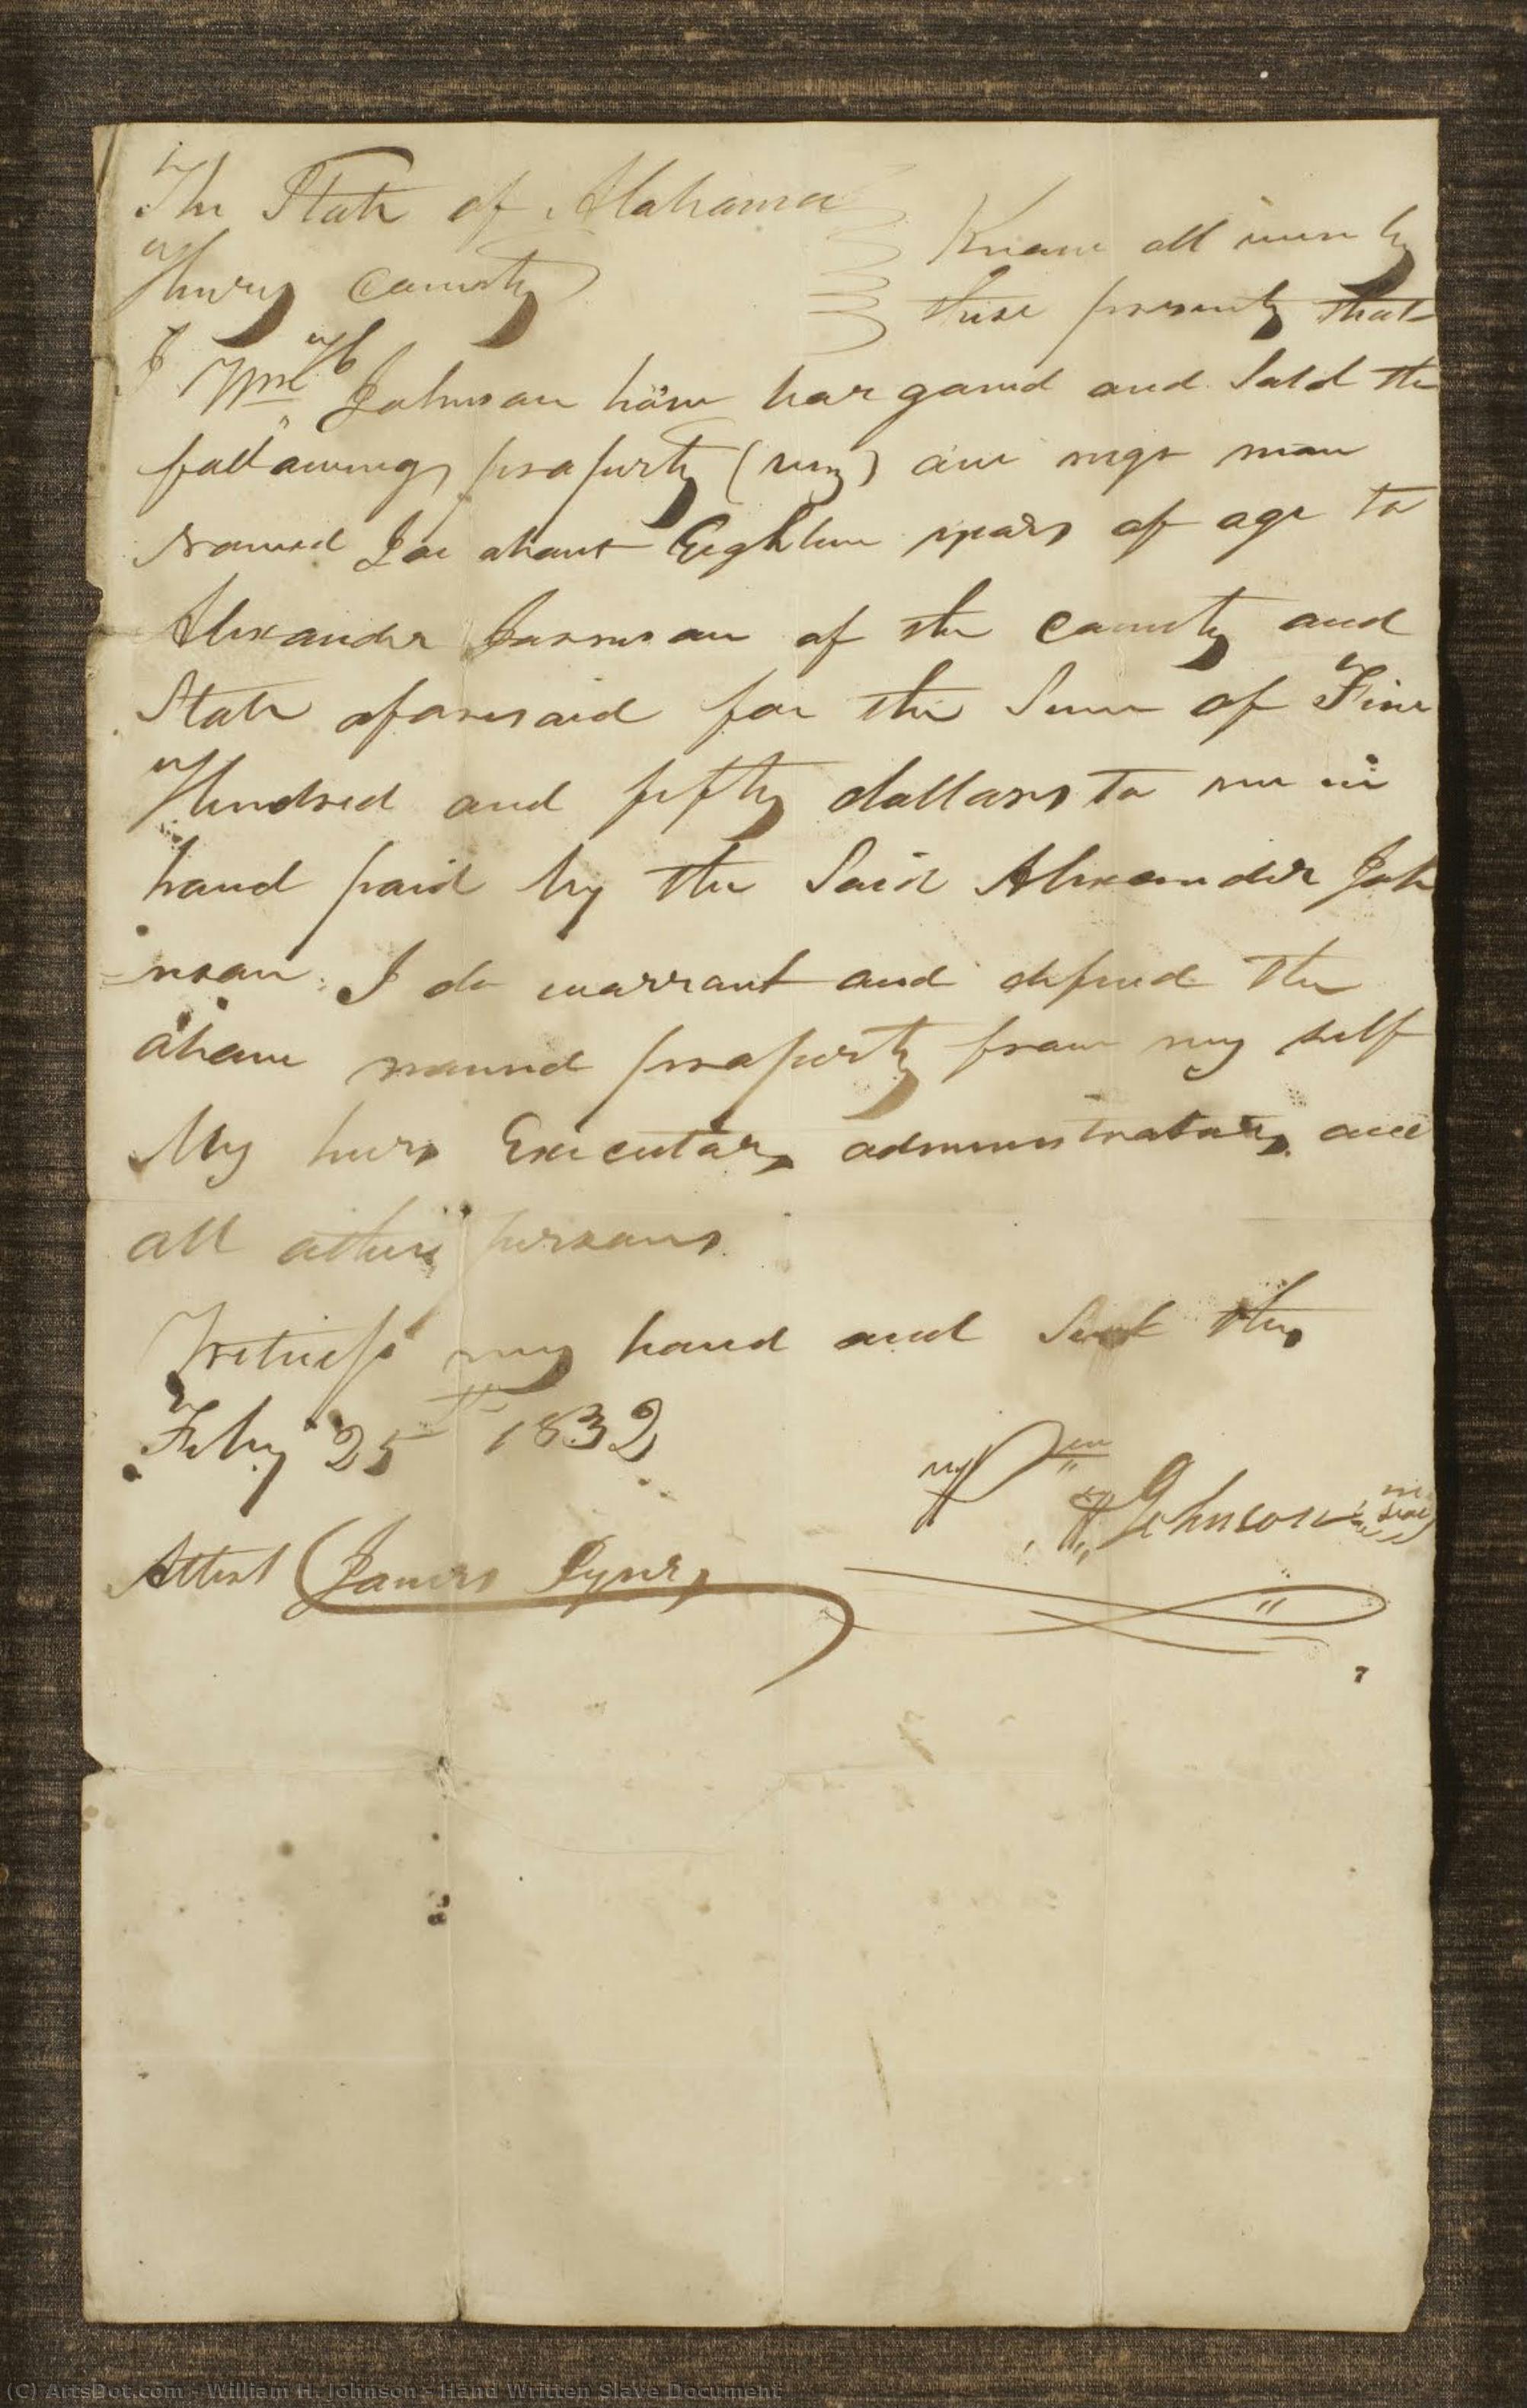 The State of Alabama
Henry County
Know all men by
these presents that
I Wm H Johnson have bargand and Sold the
following property (viz) one nigr man
named Joe about Eighteen years of age to
Alexander Johnson of the County and
State aforesaid for the Sum of Five
Hundred and fifty dollars to me in
hand paid by the Said Alexander Joh
=nson. I do warrant and defend the
above named property from my self
My heirs Executors administrators and
all others persons
Witness my hand and Seal this
Feby 25th 1832
Wm H Johnson
Attest James
(C) ArtsDot.com - William H. Johnson - Hand Written Slave Document